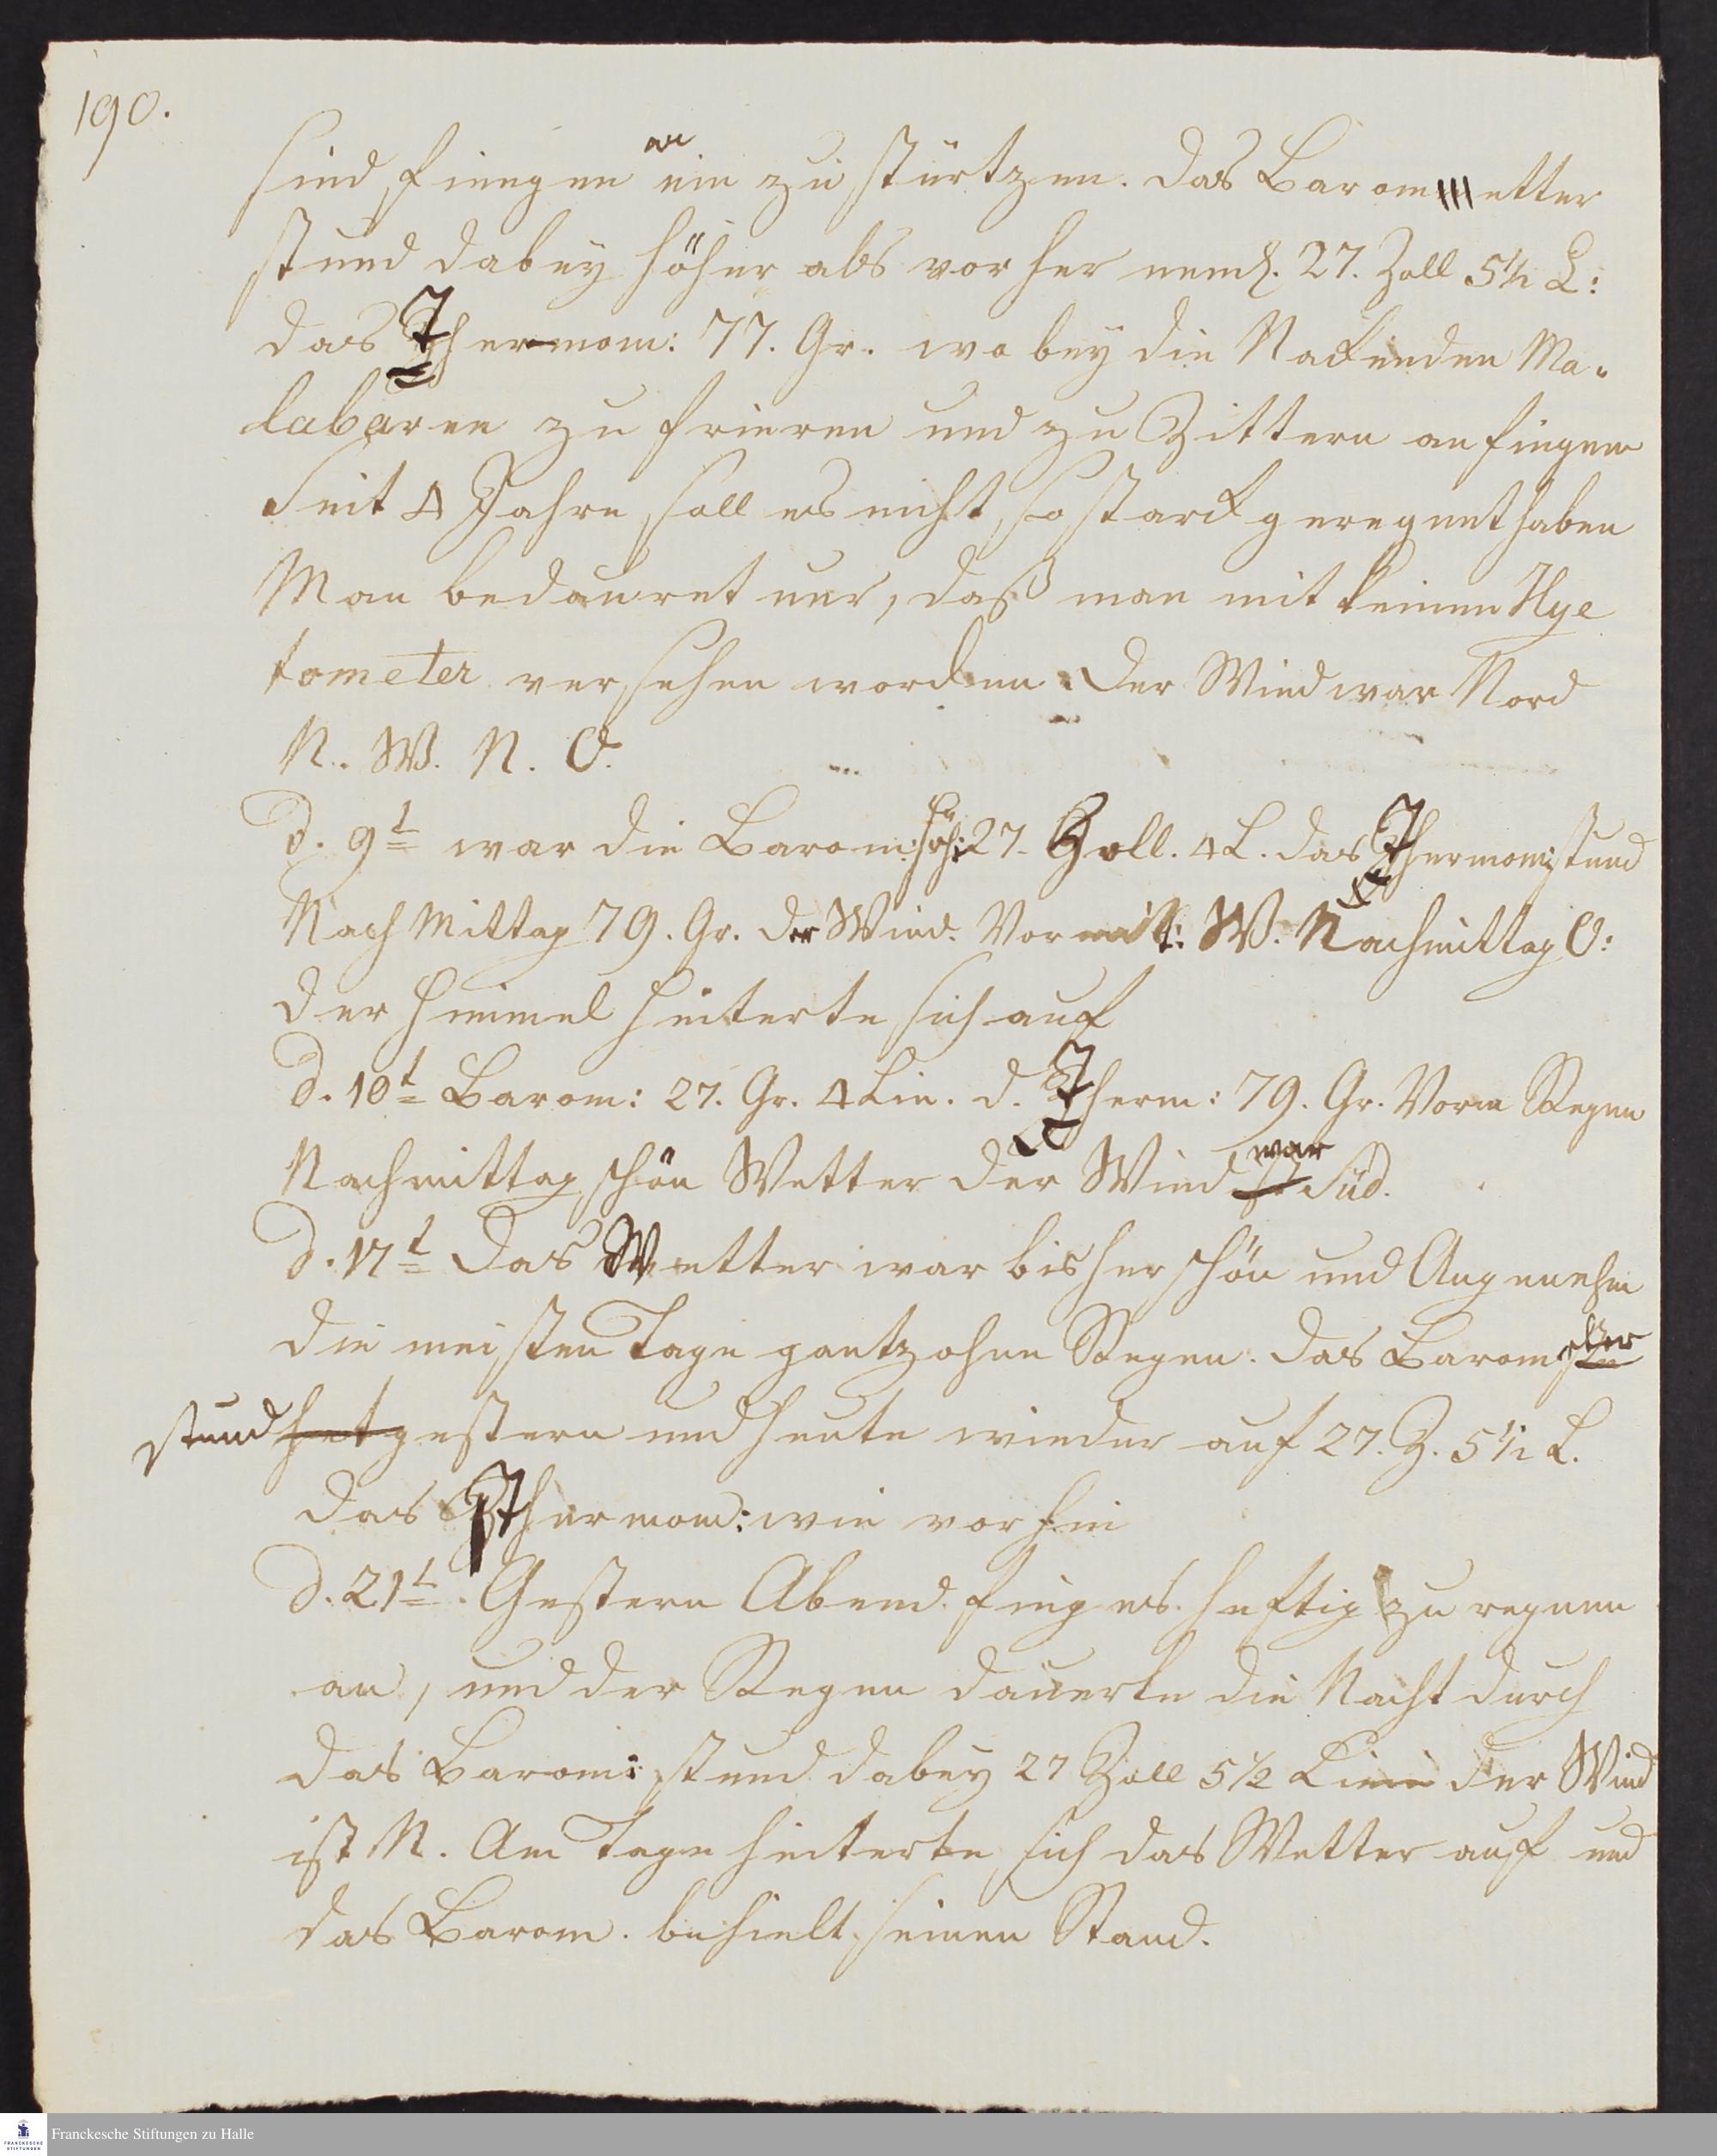 190.
sind, fiengen an ein zu stürtzen. das Barometter
stund dabey höher als vorher neml. 27. Zoll 5½ L:
das Thermom: 77. Gr. wobey die Nackenden Ma-
labaren zu frieren und zu Zittern anfingen
Seit 4 Jahre soll es nicht so starck geregnet haben
Man bedauret nur, daß man mit keinen Hye
tometer versehen worden. der Wind war Nord
N. W. N. O.
d. 9t war die Barom: höh: 27. Zoll. 4 L. das Thermom: stund
Nach Mittag 79. Gr. der Wind. Vormitt: W. Nachmittag O:
der Himmel heiterte sich auf
d. 10t Barom: 27. Gr. 4 Lin. d. Therm: 79. Gr. Vorm Regen
Nachmittag schön Wetter der Wind war Süd.
d. 17t das Wetter war bisher schön und Angenehm
die meisten Tage gantz ohne Regen. das Barometter
stund hat gestern und heute wieder auf 27. Z. 5½ L.
das Thermom: wie vorhin
d. 21t. Gestern Abend fing es heftig zu regnen
an, und der Regen dauerte die Nacht durch
das Barom: stund dabey 27 Zoll 5½ Linie der Wind
ist N. Am Tage heiterte sich das Wetter auf und
das Barom. behielt seinen Stand.
Franckesche Stiftungen zu Halle
FRANCKESCHE
STIFTUNGEN